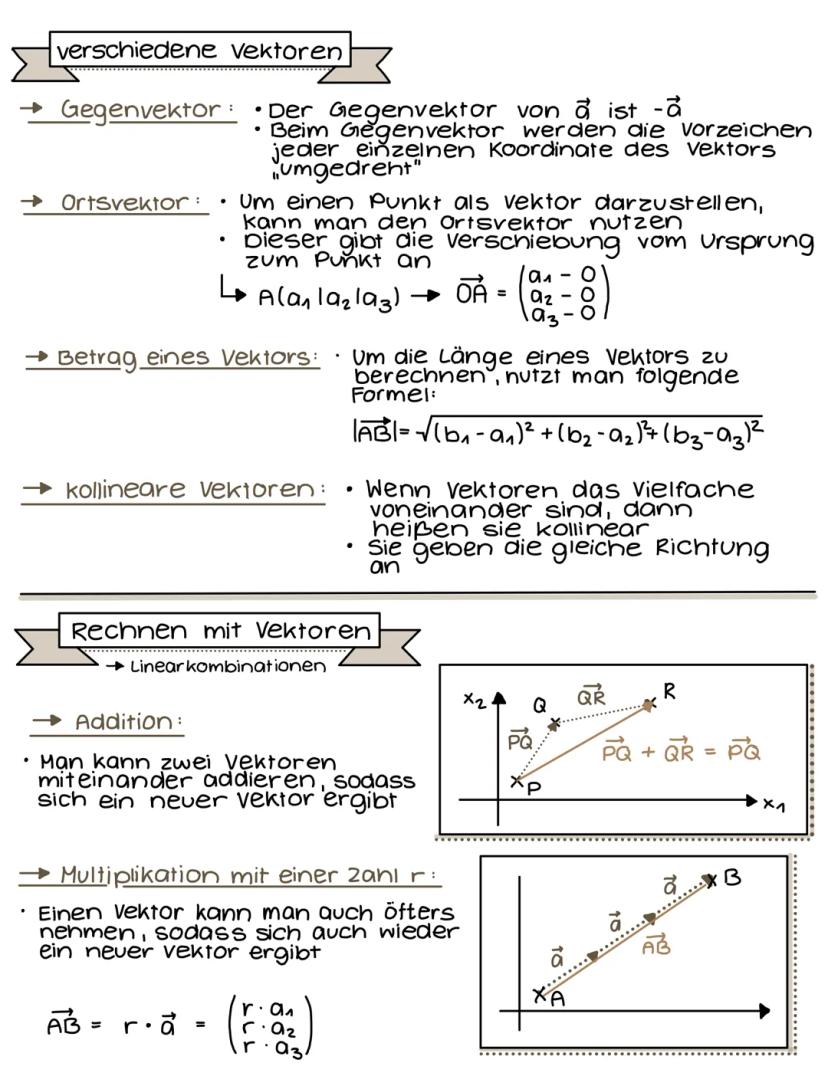 verschiedene Vektoren
→ Gegenvektor: • Der Gegenvektor von a⃗ ist -a⃗
• Beim Gegenvektor werden die Vorzeichen
jeder einzelnen Koordinate des Vektors
„umgedreht"
→ Ortsvektor: • Um einen Punkt als Vektor darzustellen,
kann man den Ortsvektor nutzen
• Dieser gibt die Verschiebung vom Ursprung
zum Punkt an
↳ A(a₁|a₂|a₃) → O͢A = (a₁ - 0
a₂ - 0
a₃ - 0)
→ Betrag eines Vektors: • Um die Länge eines Vektors zu
berechnen, nutzt man folgende
Formel:
|A͢B| = √(b₁ - a₁)² + (b₂ - a₂)² + (b₃ - a₃)²
→ kollineare Vektoren: • Wenn Vektoren das Vielfache
voneinander sind, dann
heißen sie kollinear
• Sie geben die gleiche Richtung
an
Rechnen mit Vektoren
→ Linearkombinationen
→ Addition:
• Man kann zwei Vektoren
miteinander addieren, sodass
sich ein neuer Vektor ergibt
x₂
Q
Q͢R
R
P͢Q
P͢Q + Q͢R = P͢Q
P
x₁
→ Multiplikation mit einer Zahl r:
• Einen Vektor kann man auch öfters
nehmen, sodass sich auch wieder
ein neuer Vektor ergibt
A͢B = r · a⃗ = (r · a₁
r · a₂
r · a₃)
a⃗
B
a⃗
A͢B
a⃗
A